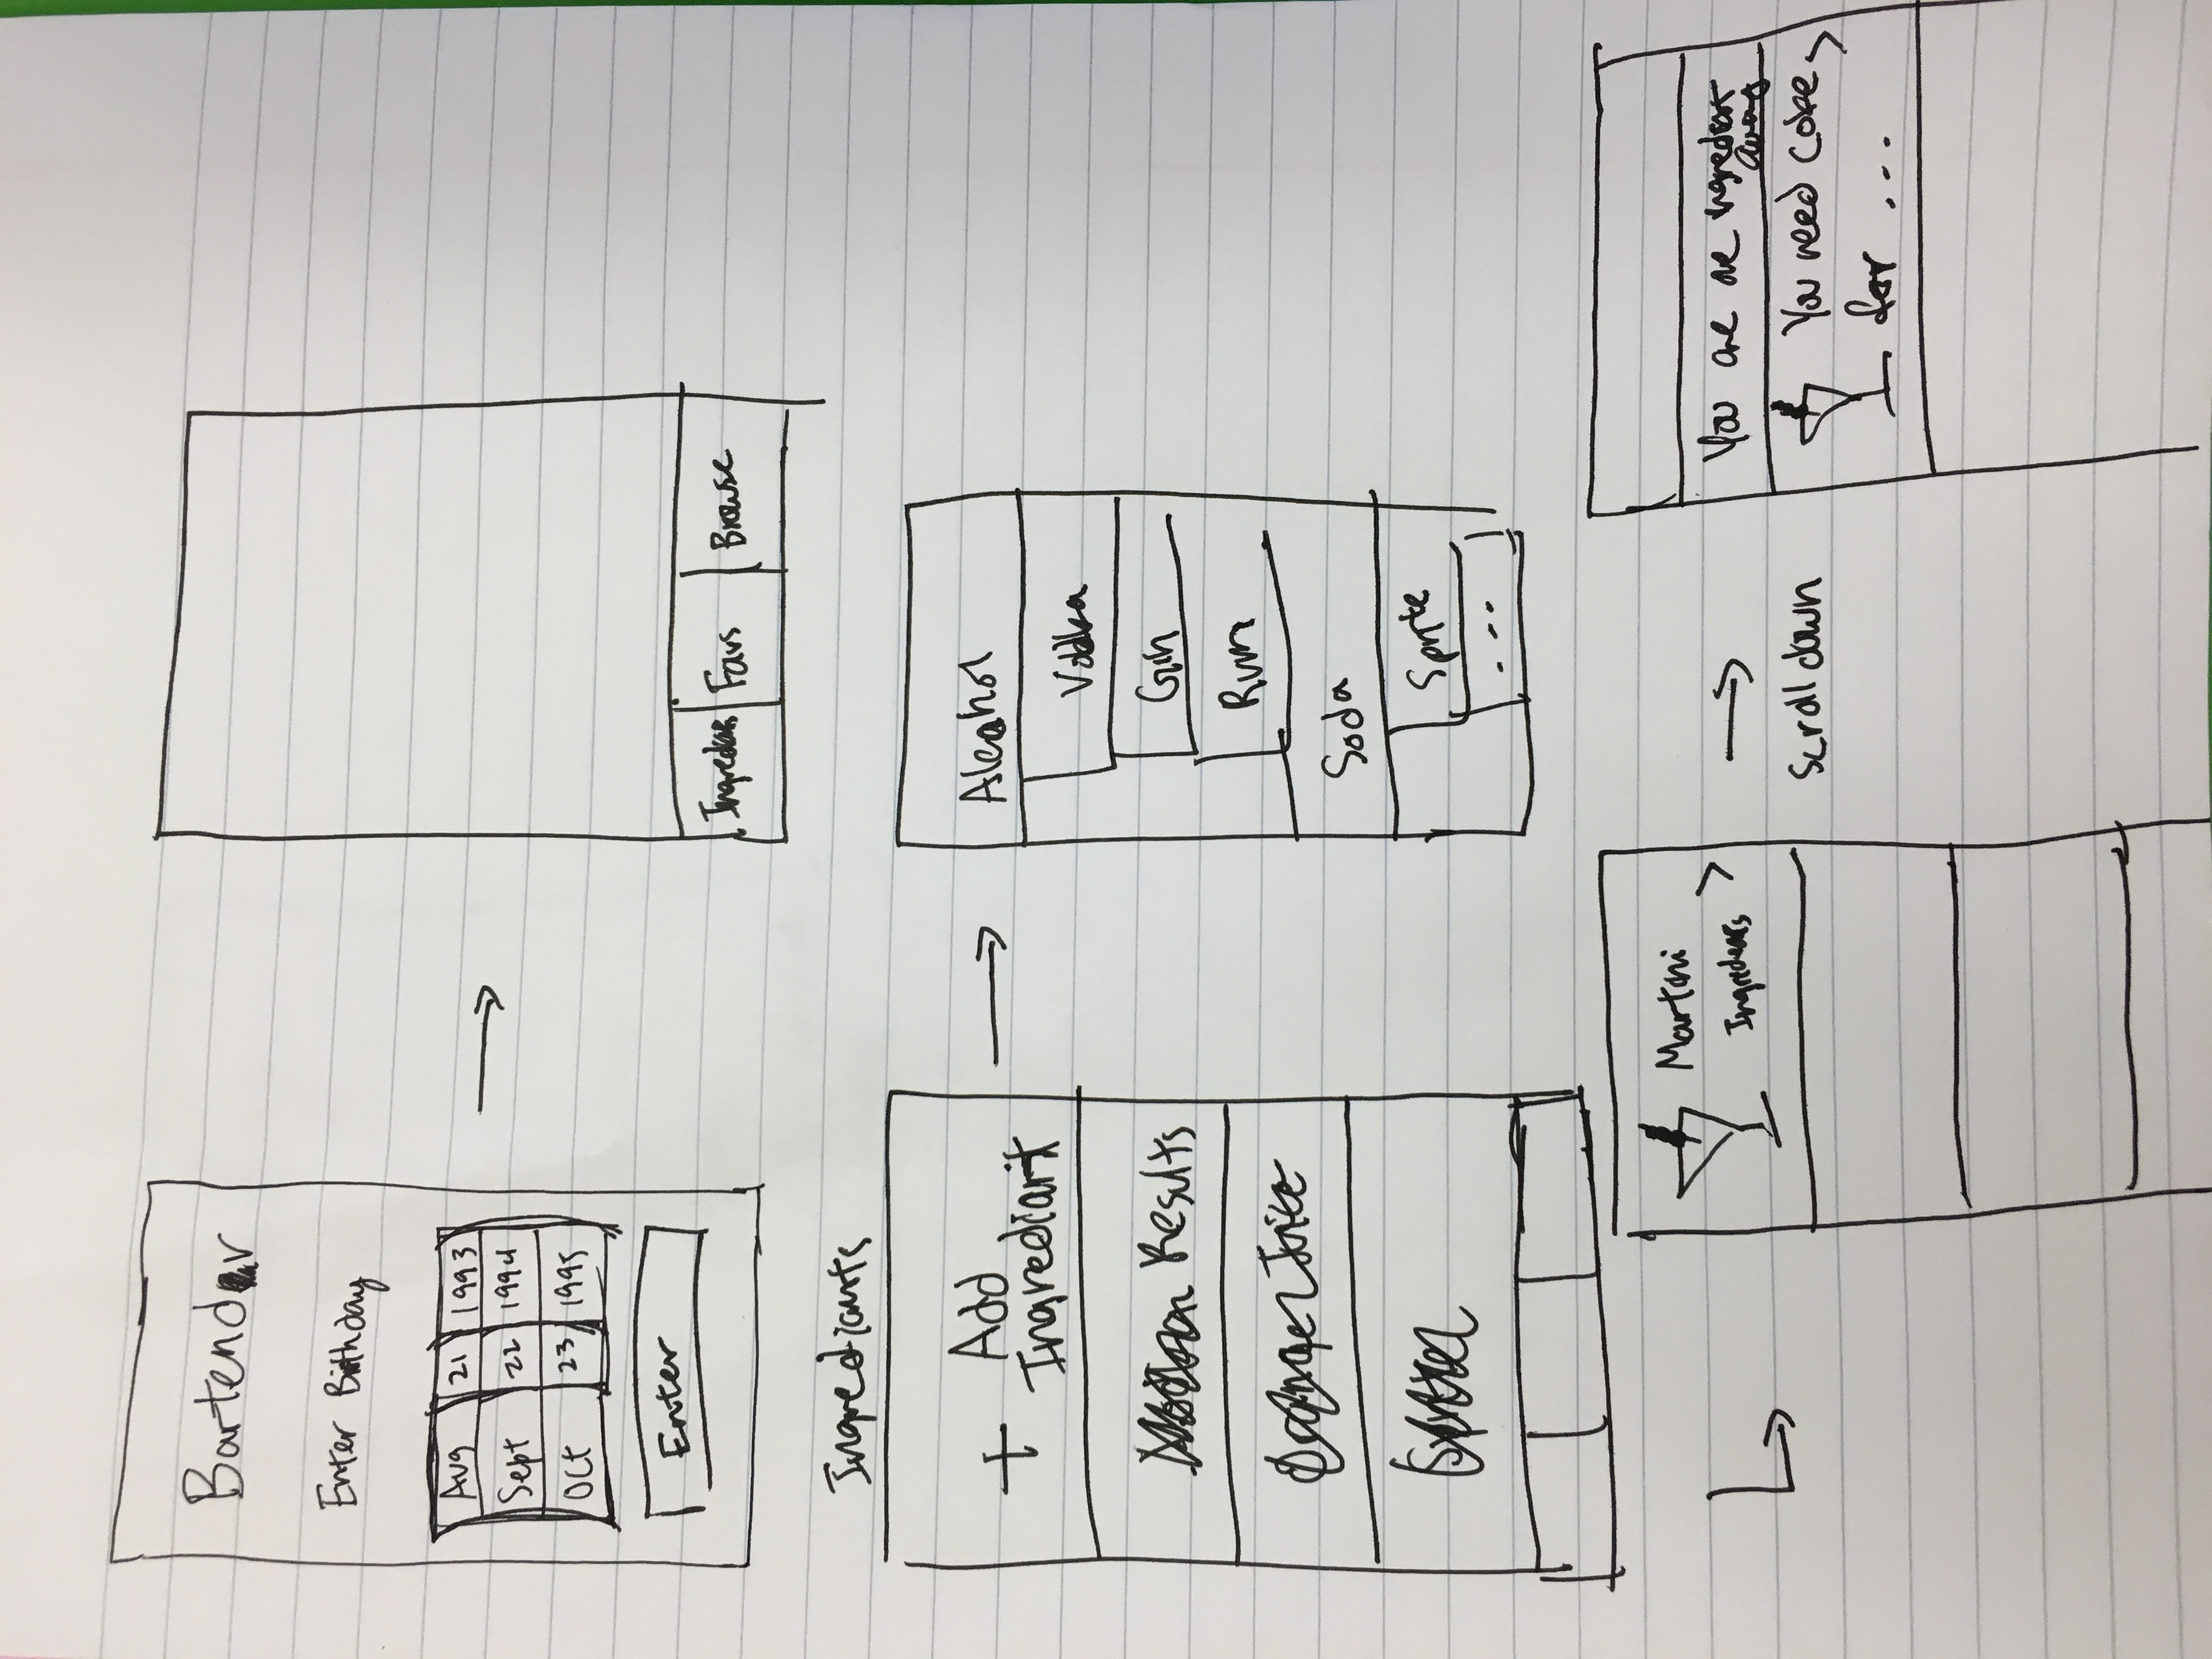 Bartender
Enter Birthday
Aug 21 1993
Sept 22 1994
Oct 23 1995
Enter
Favs Browse
Ingrediants
+ Add
Ingrediant
Results
Alcahol
Vodka
Gin
Rum
Soda
Sprite
...
Martini
Scroll down
You are one ingrediant
away
You need coke
for ...